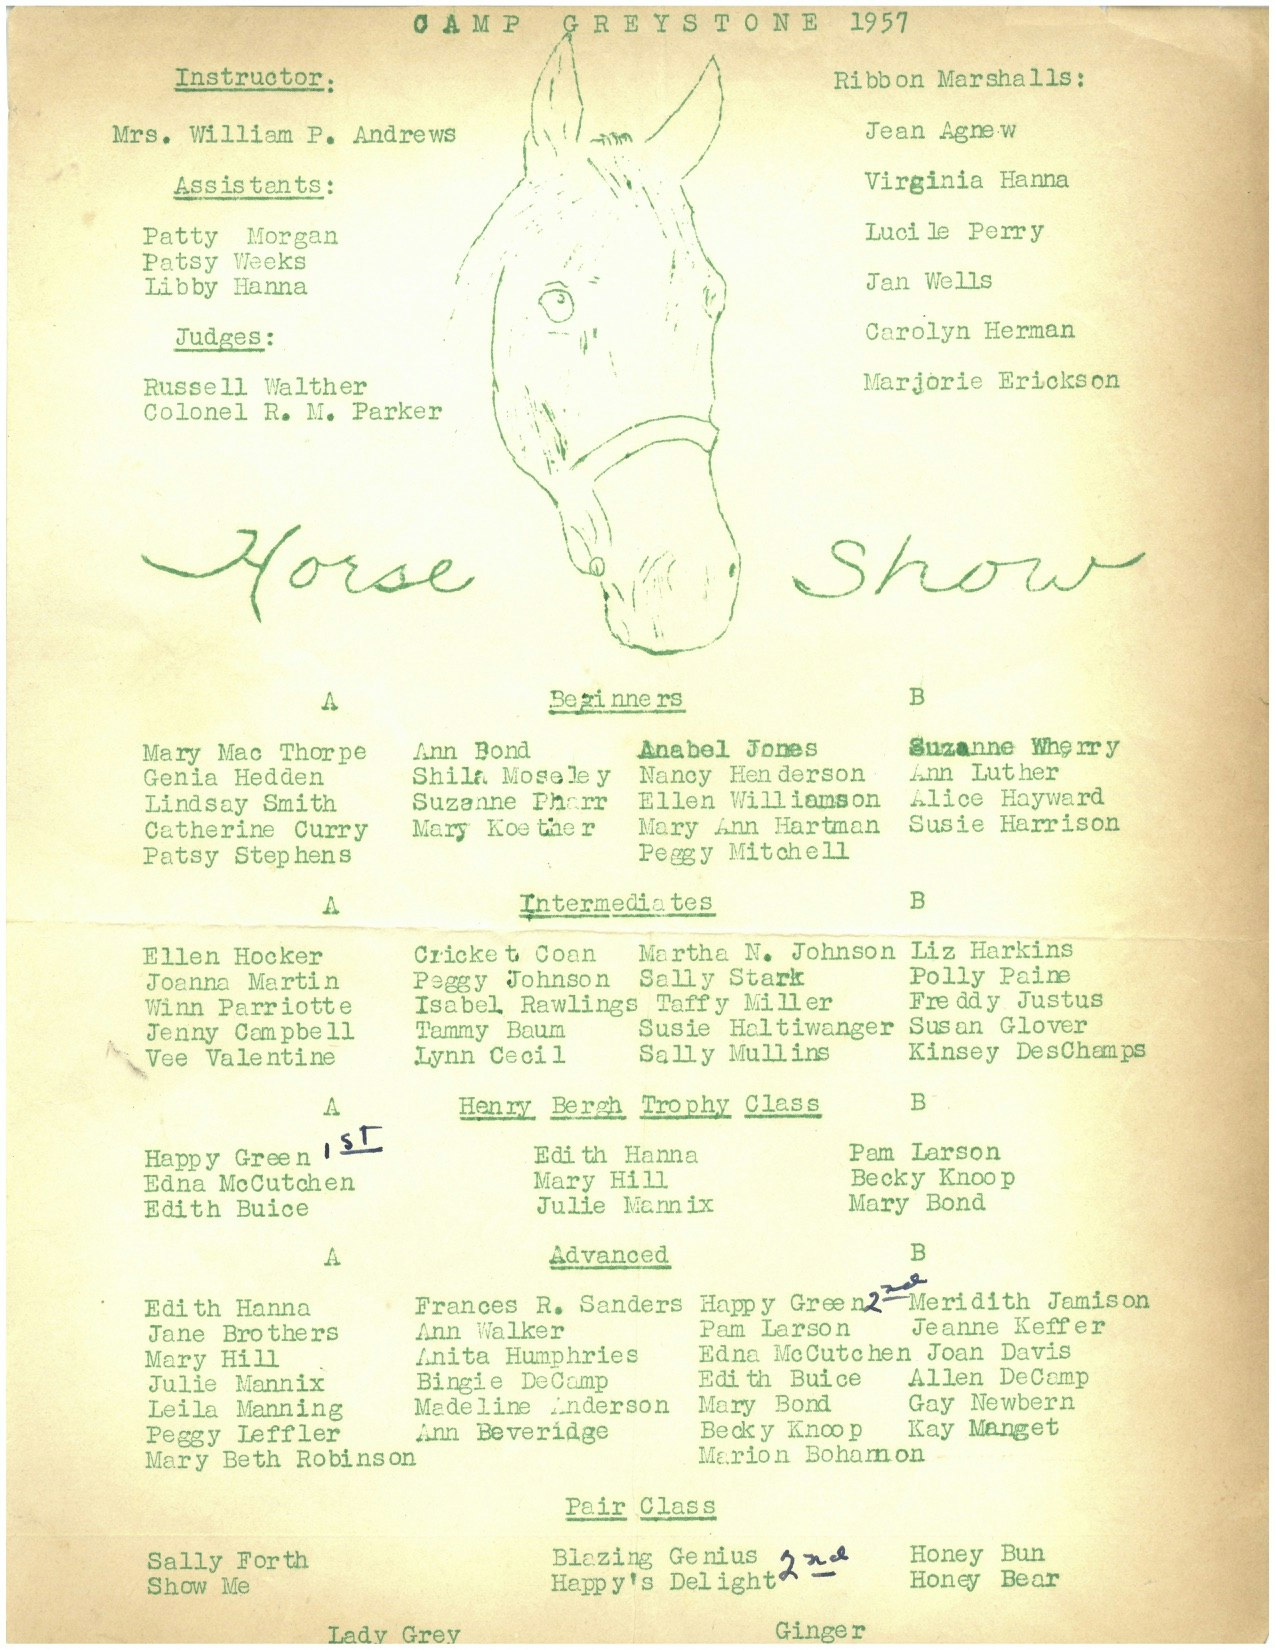 CAMP GREYSTONE 1957
Instructor:
Mrs. William P. Andrews
Assistants:
Patty Morgan
Patsy Weeks
Libby Hanna
Judges:
Russell Walther
Colonel R. M. Parker
Ribbon Marshalls:
Jean Agnew
Virginia Hanna
Lucile Perry
Jan Wells
Carolyn Herman
Marjorie Erickson
Horse Show
A Beginners B
Mary Mac Thorpe Ann Bond Anabel Jones Suzanne Wherry
Genia Hedden Shila Moseley Nancy Henderson Ann Luther
Lindsay Smith Suzanne Pharr Ellen Williamson Alice Hayward
Catherine Curry Mary Koether Mary Ann Hartman Susie Harrison
Patsy Stephens Peggy Mitchell
A Intermediates B
Ellen Hocker Cricket Coan Martha N. Johnson Liz Harkins
Joanna Martin Peggy Johnson Sally Stark Polly Paine
Winn Parriotte Isabel Rawlings Taffy Miller Freddy Justus
Jenny Campbell Tammy Baum Susie Haltiwanger Susan Glover
Vee Valentine Lynn Cecil Sally Mullins Kinsey DesChamps
A Henry Bergh Trophy Class B
Happy Green 1ST Edith Hanna Pam Larson
Edna McCutchen Mary Hill Becky Knoop
Edith Buice Julie Mannix Mary Bond
A Advanced B
Edith Hanna Frances R. Sanders Happy Green 2nd Meridith Jamison
Jane Brothers Ann Walker Pam Larson Jeanne Keffer
Mary Hill Anita Humphries Edna McCutchen Joan Davis
Julie Mannix Bingie DeCamp Edith Buice Allen DeCamp
Leila Manning Madeline Anderson Mary Bond Gay Newbern
Peggy Leffler Ann Beveridge Becky Knoop Kay Manget
Mary Beth Robinson Marion Bohannon
Pair Class
Sally Forth Blazing Genius 2nd Honey Bun
Show Me Happy's Delight Honey Bear
Lady Grey Ginger